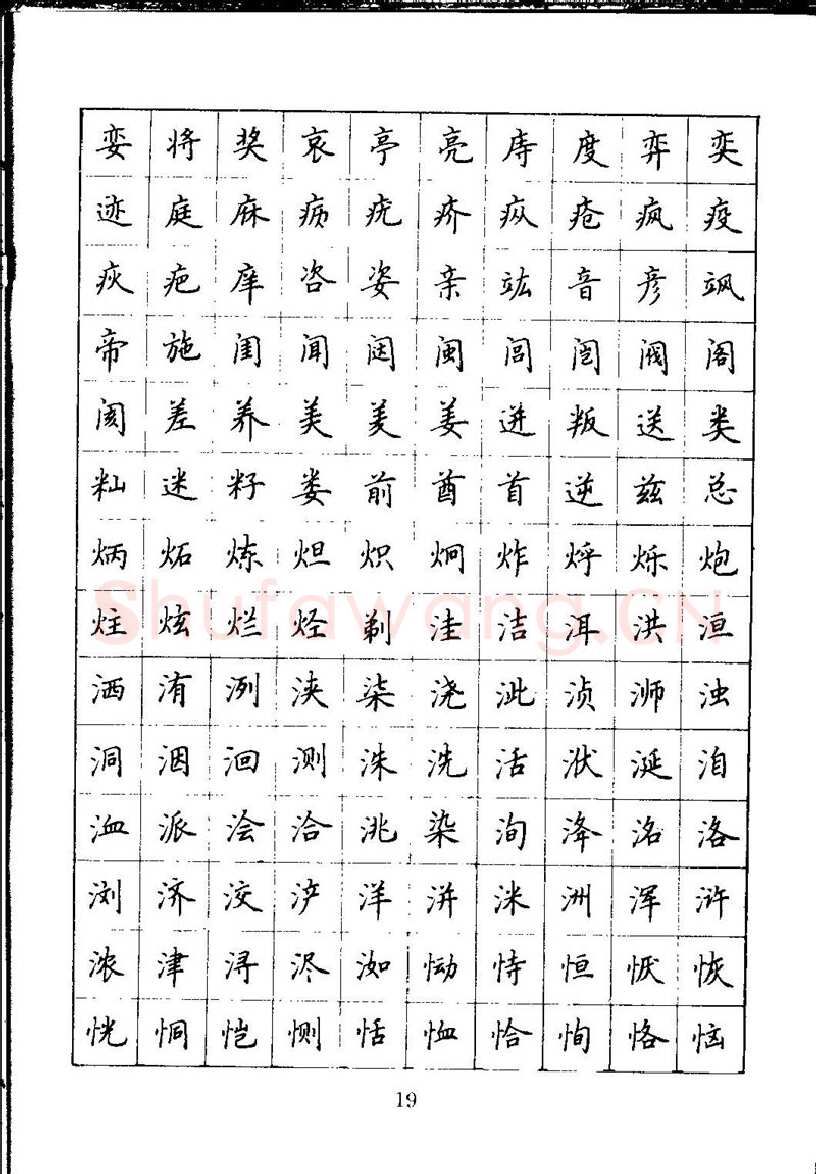 娈将奖哀亭亮庤度弈奕
迹庭庥疬疣疥疭疮疯疫
疢疤庠咨姿亲竑音彦飒
帝施闺闻闼闽闾闿阀阁
阂差养美羑姜迸叛送类
籼迷籽娄前酋首逆兹总
炳炻炼炟炽炯炸烀烁炮
炷炫烂烃剃洼洁洱洪洹
洒洧洌浃柒浇泚浈浉浊
洞洇洄测洙洗活洑涎洎
洫派浍洽洮染洵洚洺洛
浏济洨浐洋洴洣洲浑浒
浓津浔浕洳恸恃恒恹恢
恍恫恺恻恬恤恰恂恪恼
19
Shufawang.CN